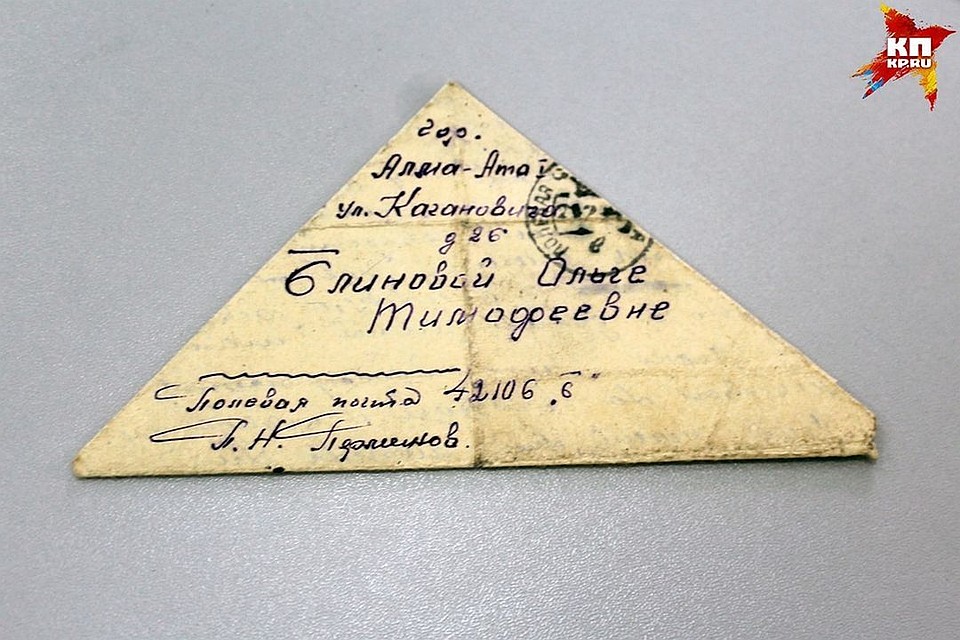 КП
KP.RU
гор.
Алма-Ата I
ул. Кагановича
д 26
Блиновой Ольге
Тимофеевне
Полевая почта 42106 „Б"
П. Н. Перминов.
ПОЛЕВАЯ